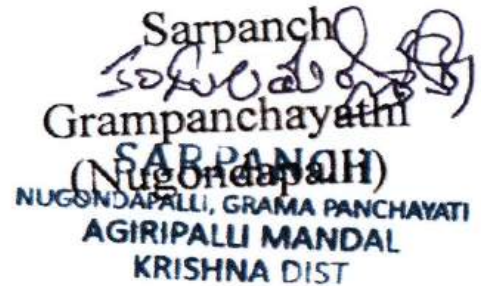 Sarpanch
Grampanchayathi
(Nugondapalli)
SARPANCH
NUGONDAPALLI, GRAMA PANCHAYATI
AGIRIPALLI MANDAL
KRISHNA DIST